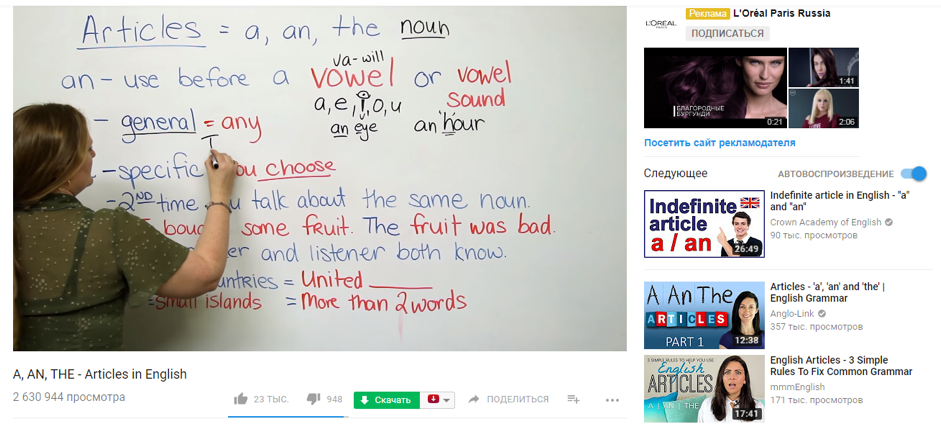 Articles = a, an, the noun
va-will
an - use before a vowel or vowel
sound
a, e, i, o, u
- general = any
an eye an hour
- specific you choose
= 2ND time you talk about the same noun.
some fruit. The fruit was bad.
and listener both know.
= United
= small islands = More than 2 words
A, AN, THE - Articles in English
2 630 944 просмотра
23 ТЫС.
948
Скачать
ПОДЕЛИТЬСЯ
L'ORÉAL
Реклама L'Oréal Paris Russia
ПОДПИСАТЬСЯ
БЛАГОРОДНЫЕ
БУРГУНДИ
0:21
1:41
2:06
Посетить сайт рекламодателя
Следующее
АВТОВОСПРОИЗВЕДЕНИЕ
Indefinite
article
a / an
26:49
Indefinite article in English - "a"
and "an"
Crown Academy of English
90 тыс. просмотров
A An The
ARTICLES
PART 1
12:38
Articles - 'a', 'an' and 'the' |
English Grammar
Anglo-Link
357 тыс. просмотров
3 SIMPLE RULES TO HELP YOU USE
English
ARTICLES
A | AN | THE
17:41
English Articles - 3 Simple
Rules To Fix Common Grammar
mmmEnglish
171 тыс. просмотров